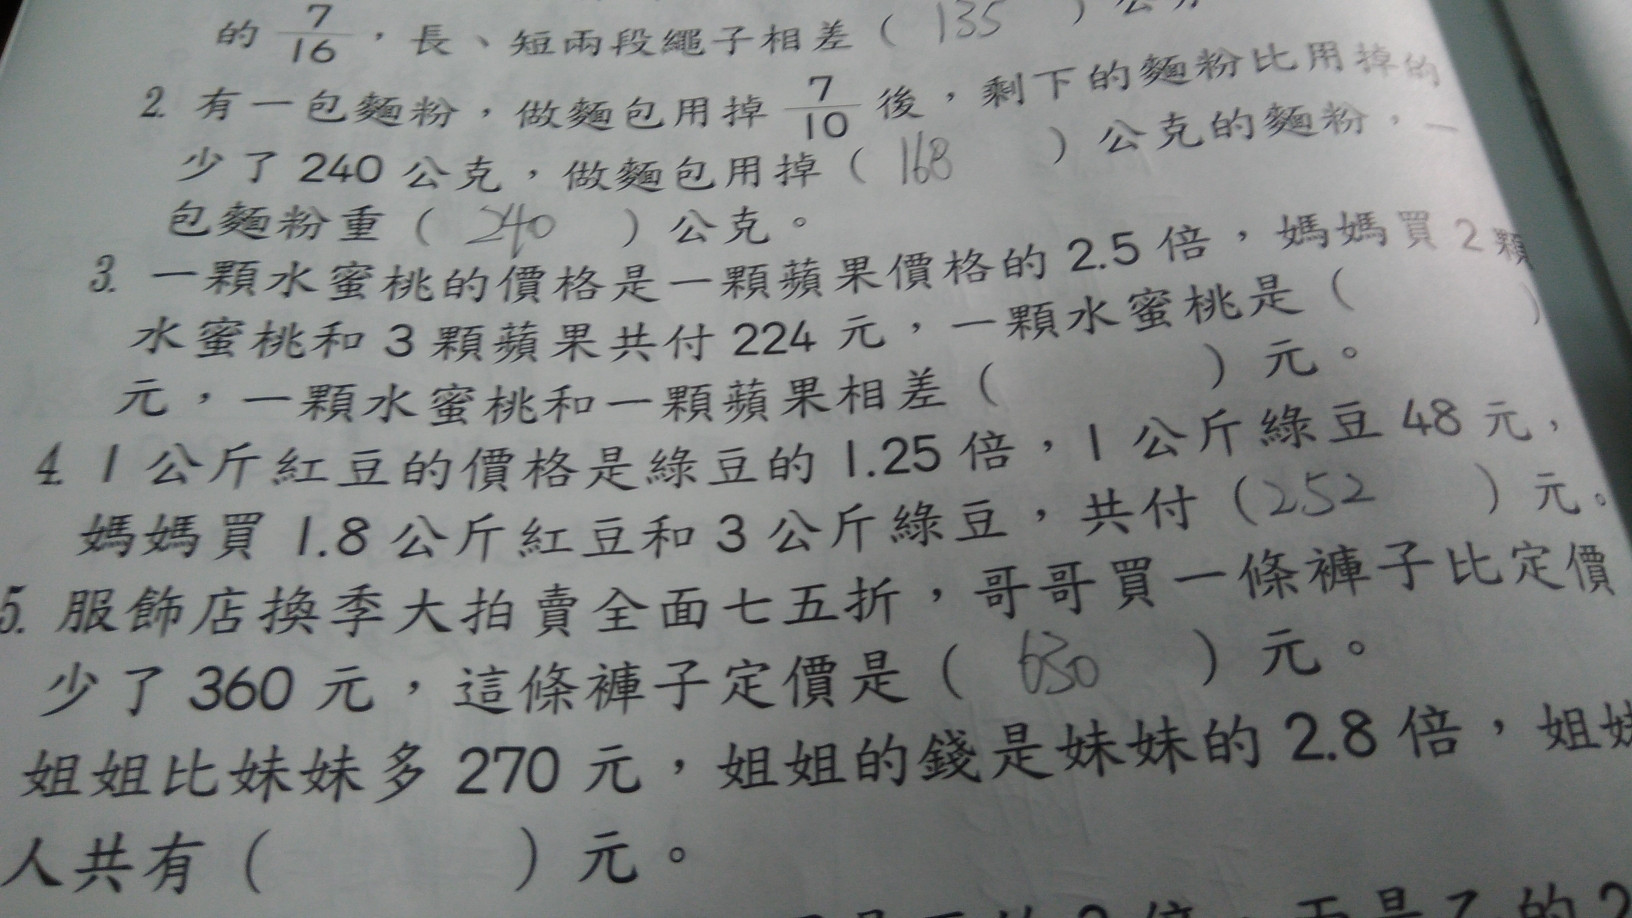 的 7/16，長、短兩段繩子相差（ 135 ）公分
2. 有一包麵粉，做麵包用掉 7/10 後，剩下的麵粉比用掉的
少了 240 公克，做麵包用掉（ 168 ）公克的麵粉，一
包麵粉重（ 240 ）公克。
3. 一顆水蜜桃的價格是一顆蘋果價格的 2.5 倍，媽媽買 2 顆
水蜜桃和 3 顆蘋果共付 224 元，一顆水蜜桃是（ ）
元，一顆水蜜桃和一顆蘋果相差（ ）元。
4. 1 公斤紅豆的價格是綠豆的 1.25 倍，1 公斤綠豆 48 元，
媽媽買 1.8 公斤紅豆和 3 公斤綠豆，共付（252 ）元。
5. 服飾店換季大拍賣全面七五折，哥哥買一條褲子比定價
少了 360 元，這條褲子定價是（ 630 ）元。
姐姐比妹妹多 270 元，姐姐的錢是妹妹的 2.8 倍，姐妹
人共有（ ）元。
的 2